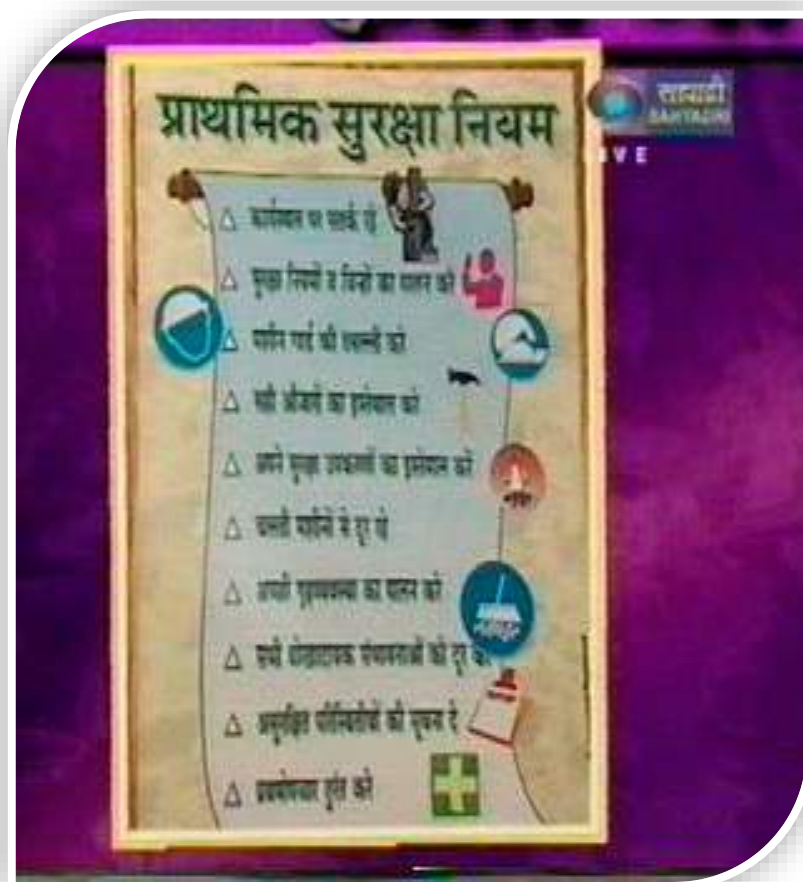 प्राथमिक सुरक्षा नियम
सह्याद्री
SAHYADRI
LIVE
△ कार्यस्थल पर सतर्क रहें
△ सुरक्षा नियमों व चिन्हों का पालन करे
△ मशीन गार्ड की तसल्ली करे
△ सही औजारों का इस्तेमाल करे
△ अपने सुरक्षा उपकरणों का इस्तेमाल करें
△ चलती मशीनों से दूर रहे
△ अच्छी गृहव्यवस्था का पालन करे
△ सभी धोखादायक संभावनाओं को दूर करे
△ असुरक्षित परिस्थितीयों की सूचना दे
△ प्रथमोपचार तुरंत करे